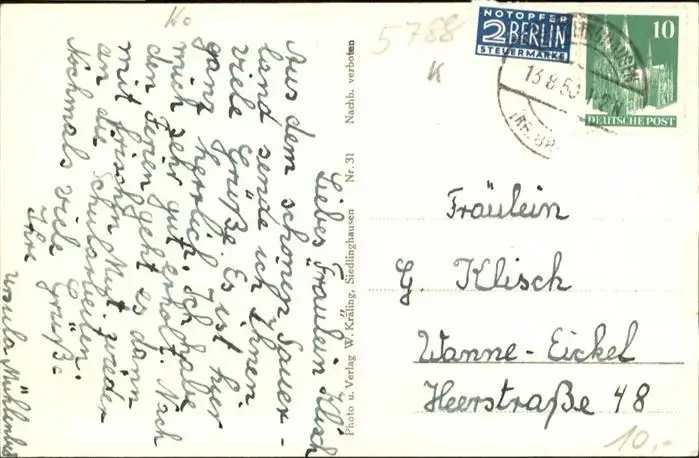 Ko
5788
K
NOTOPFER
2 BERLIN
STEUERMARKE
10
DEUTSCHE POST
13.8.50
Liebes Fräulein Klisch
Aus dem schönen Sauer-
land sende ich Ihnen
viele Grüße. Es ist hier
ganz herrlich. Ich habe
mich sehr gut erholt. Nach
den Ferien geht es dann
mit frischem Mut wieder
an die Schularbeiten.
Nochmals viele Grüße
Ihre
Ursula Mühlenbus
Photo u. Verlag W. Kräling, Siedlinghausen Nr. 31 Nachb. verboten
Fräulein
G. Klisch
Wanne-Eickel
Heerstraße 48
10.-